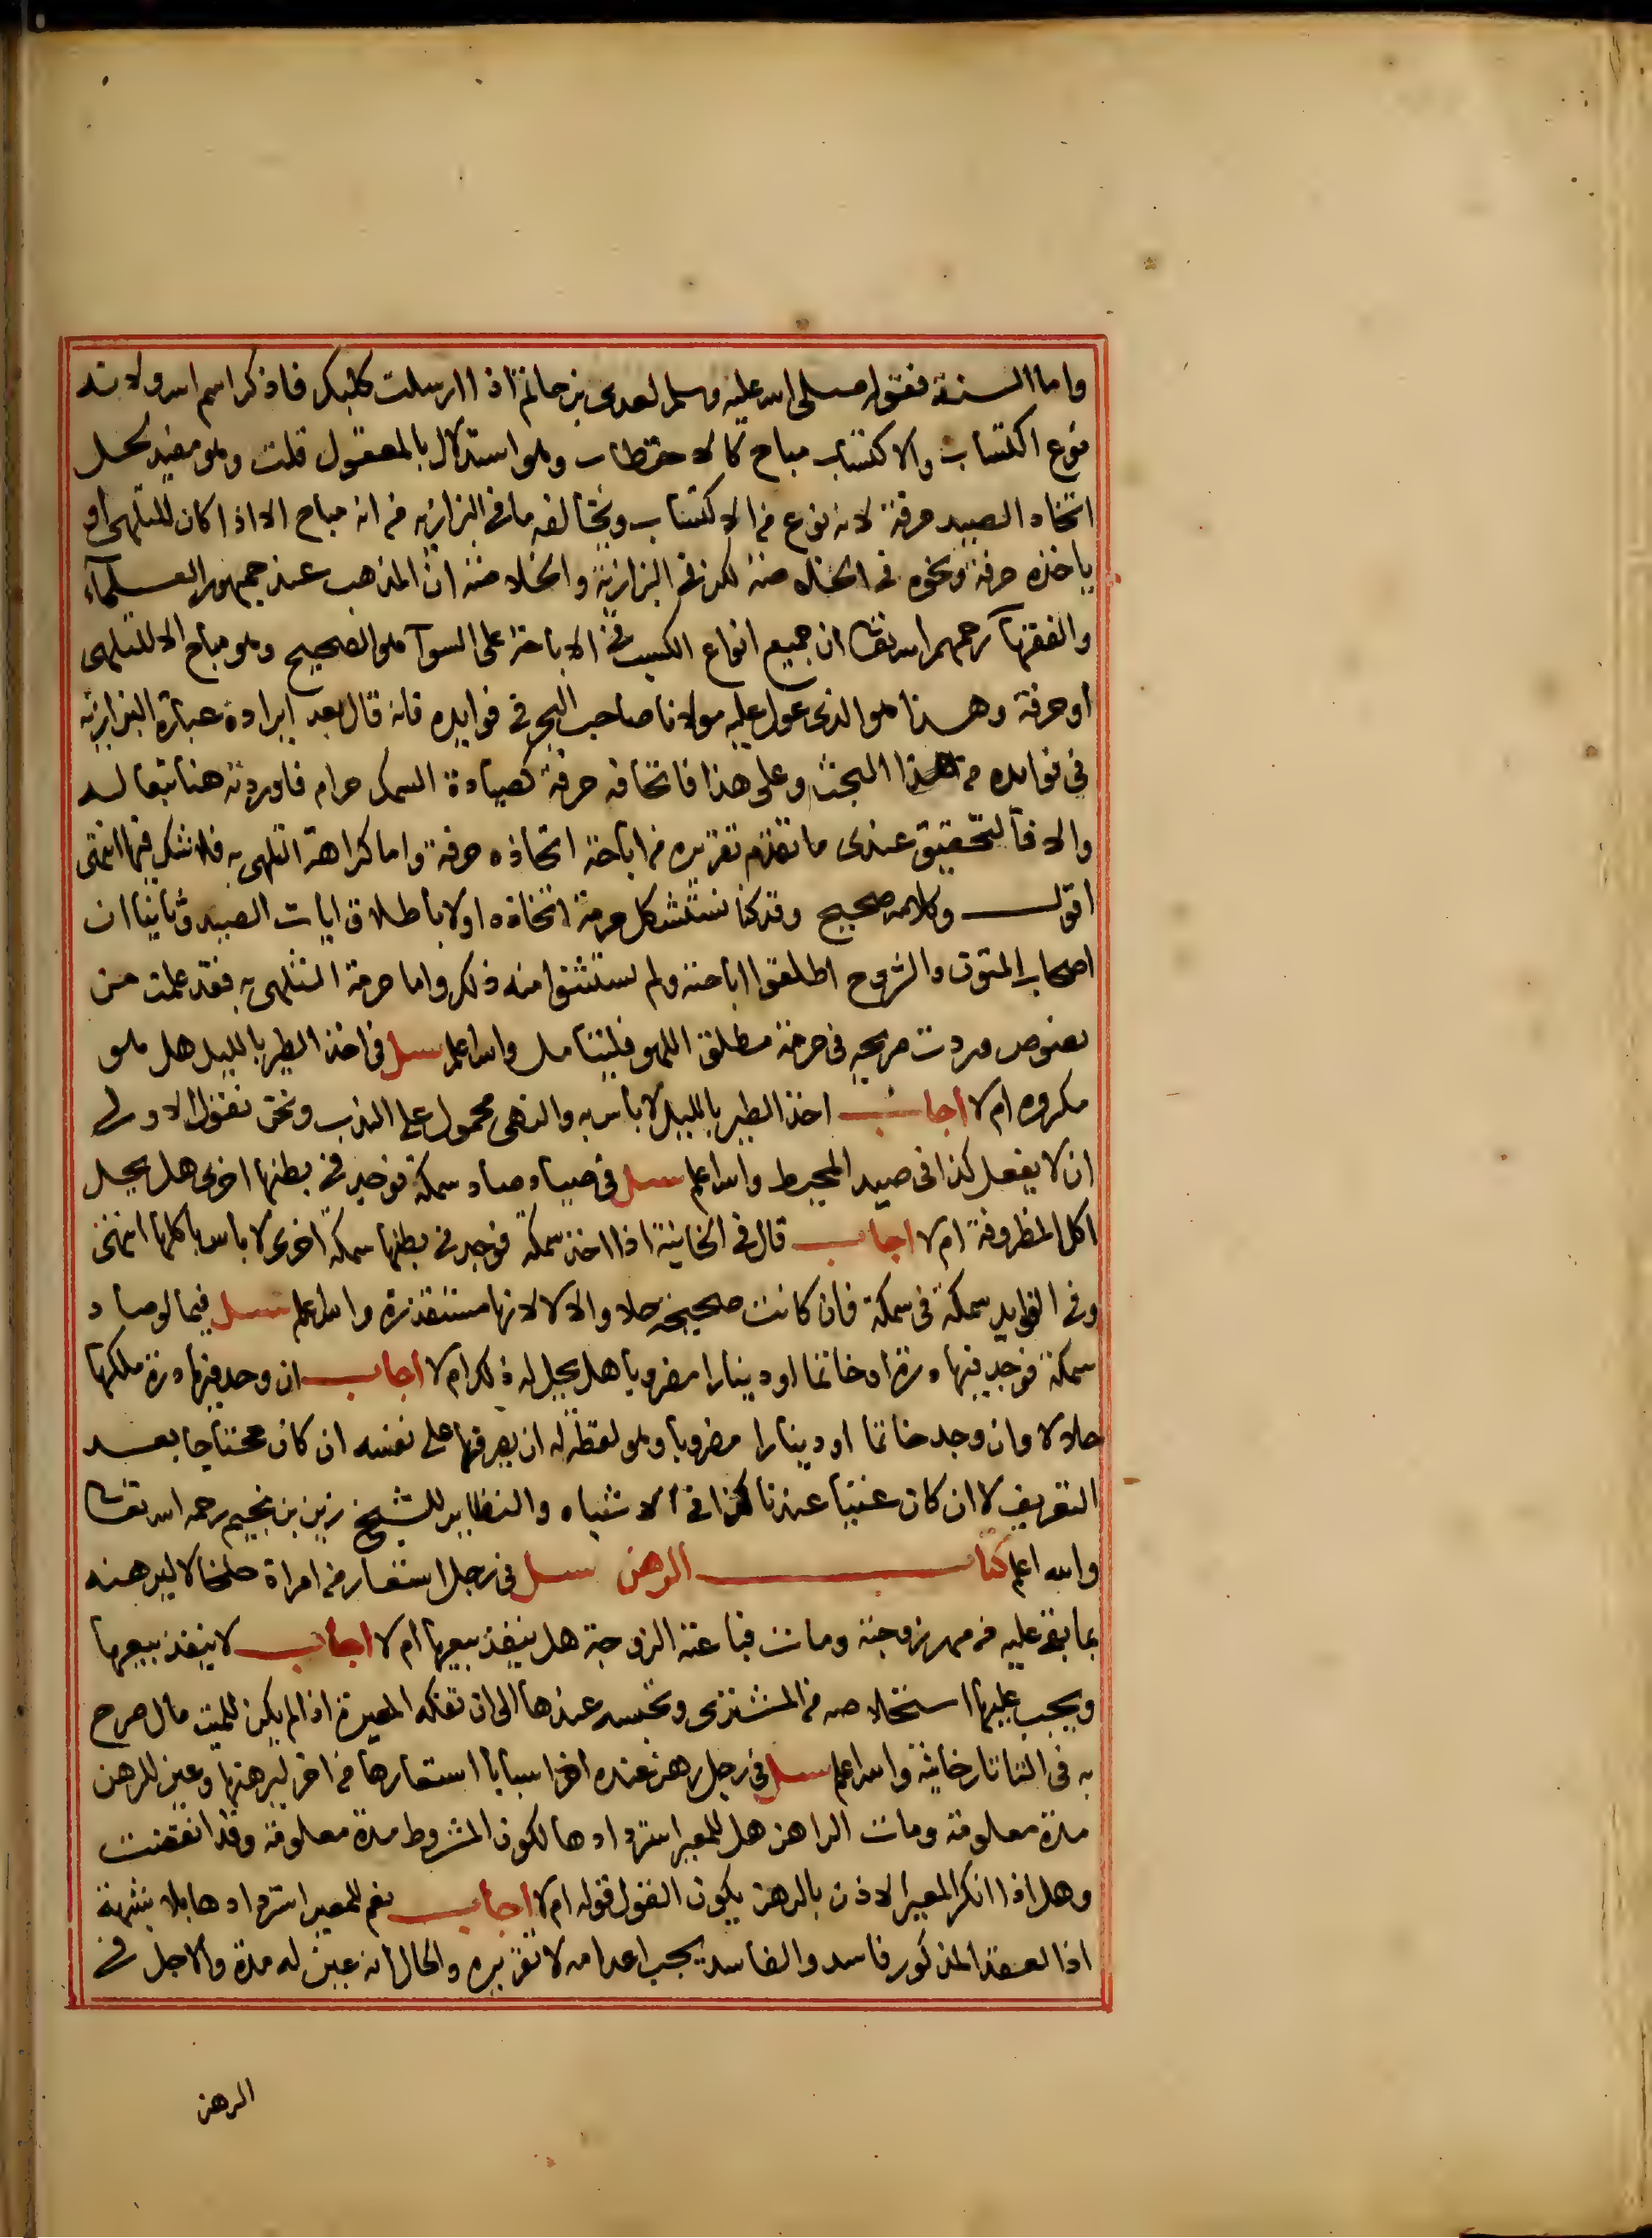 واما السنة فقوله صلى الله عليه وسلم لعدى بن حاتم اذا ارسلت كلبك فاذكر اسم الله ولانه
نوع اكتساب والاكتساب مباح كالاحتطاب وهو استدلال بالمعقول قلت وهو مفيد لحل
اتخاد الصيد حرفة لانه نوع من الاكتساب ويخالفه ما فى البزازيه من انه مباح الا اذا كان للتلهى او
ياخذه حرفة ونحوه فى الخلاصة لكن فى البزازية والخلاصة ان المذهب عند جمهور العلماء
والفقهاء رحمهم الله تعالى ان جميع انواع الكسب فى الاباحة على السوآ هو الصحيح وهو مباح الا للتلهى
او حرفة وهذا هو الذى عول عليه مولانا صاحب البحر فى فوايده فانه قال بعد ايراده عبارة البزازيه
فى فوايده من هذا البحث وعلى هذا فاتخاذه حرفة كصيادة السمك حرام فاوردته هنا تبعا له
والا فالتحقيق عندى ما تقدم تقريره من اباحة اتخاذه حرفة واما كراهة التلهى به فلا شك فيها انتهى
اقول وكلامه صحيح وقد كنا نستشكل حرمة اتخاذه اولا باطلاق ايات الصيد وثانيا ان
اصحاب المتون والشروح اطلقوا اباحته ولم يستثنوا منه ذلك واما حرمة التلهى به فقد علمت من
نصوص وردت صريحه فى حرمة مطلق اللهو فليتامل والله اعلم سىل فى اخذ الطير بالليل هل هو
مكروه ام لا اجاب اخذ الطير بالليل لا باس به والنهى محمول على الندب ونحن نقول الاولى
ان لا يفعل كذا فى صيد المحيط والله اعلم سىل فى صياد صاد سمكة فوجد فى بطنها اخرى هل يحل
اكل المظروفة ام لا اجاب قال فى الخانية اذا اخذ سمكة فوجد فى بطنها سمكة اخرى لا باس باكلها انتهى
وفى الفوايد سمكة فى سمكة فان كانت صحيحة حلا والا لا لانها مستقذرة والله اعلم سىل فيما لو صاد
سمكة فوجد فيها درة او خاتما او دينارا مضروبا هل يحل له ذلك ام لا اجاب ان وجد فيها درة ملكها
حلالا وان وجد خاتما او دينارا مضروبا وهو لقطة له ان يصرفها على نفسه ان كان محتاجا بعد
التعريف لا ان كان غنيا عندنا كذا فى الاشباه والنظاير للشيخ زين بن نجيم رحمه الله تعالى
والله اعلم كتاب الرهن سىل فى رجل استعار من امراة خلخالا ليرهنه
بما بقى عليه من مهر زوجته ومات فباعته الزوجة هل ينفذ بيعها ام لا اجاب لا ينفذ بيعها
ويجب عليها استخلاصه من المشترى وتحبسه عندها الى ان تفكه المعيرة اذا لم يكن للميت مال صرح
به فى التاتارخانية والله اعلم سىل فى رجل رهن عنده اخر اسبابا استعارها من اخر ليرهنها وعين للرهن
مدة معلومة ومات الراهن هل للمعير استردادها لكون المشروط مدة معلومة وقد انقضت
وهل اذا انكر المعير الاذن بالرهن يكون القول قوله ام لا اجاب نعم للمعير استردادها بلا شبهة
اذ العقد المذكور فاسد والفاسد يجب اعدامه لا تقريره والحال انه عين له مدة والاجل فى
الرهن